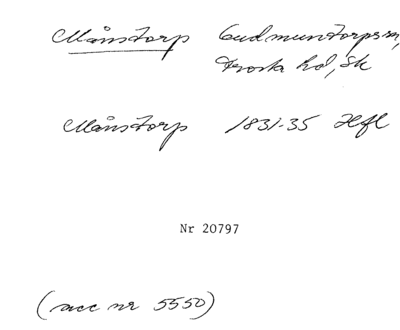 Månstorp Gudmuntorps sn,
Frosta hd, Sk
Månstorp 1831-35 Hfl
Nr 20797
(acc nr 5550)